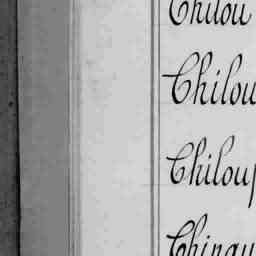 Chilou
Chilou
Chiloup
Chinqu